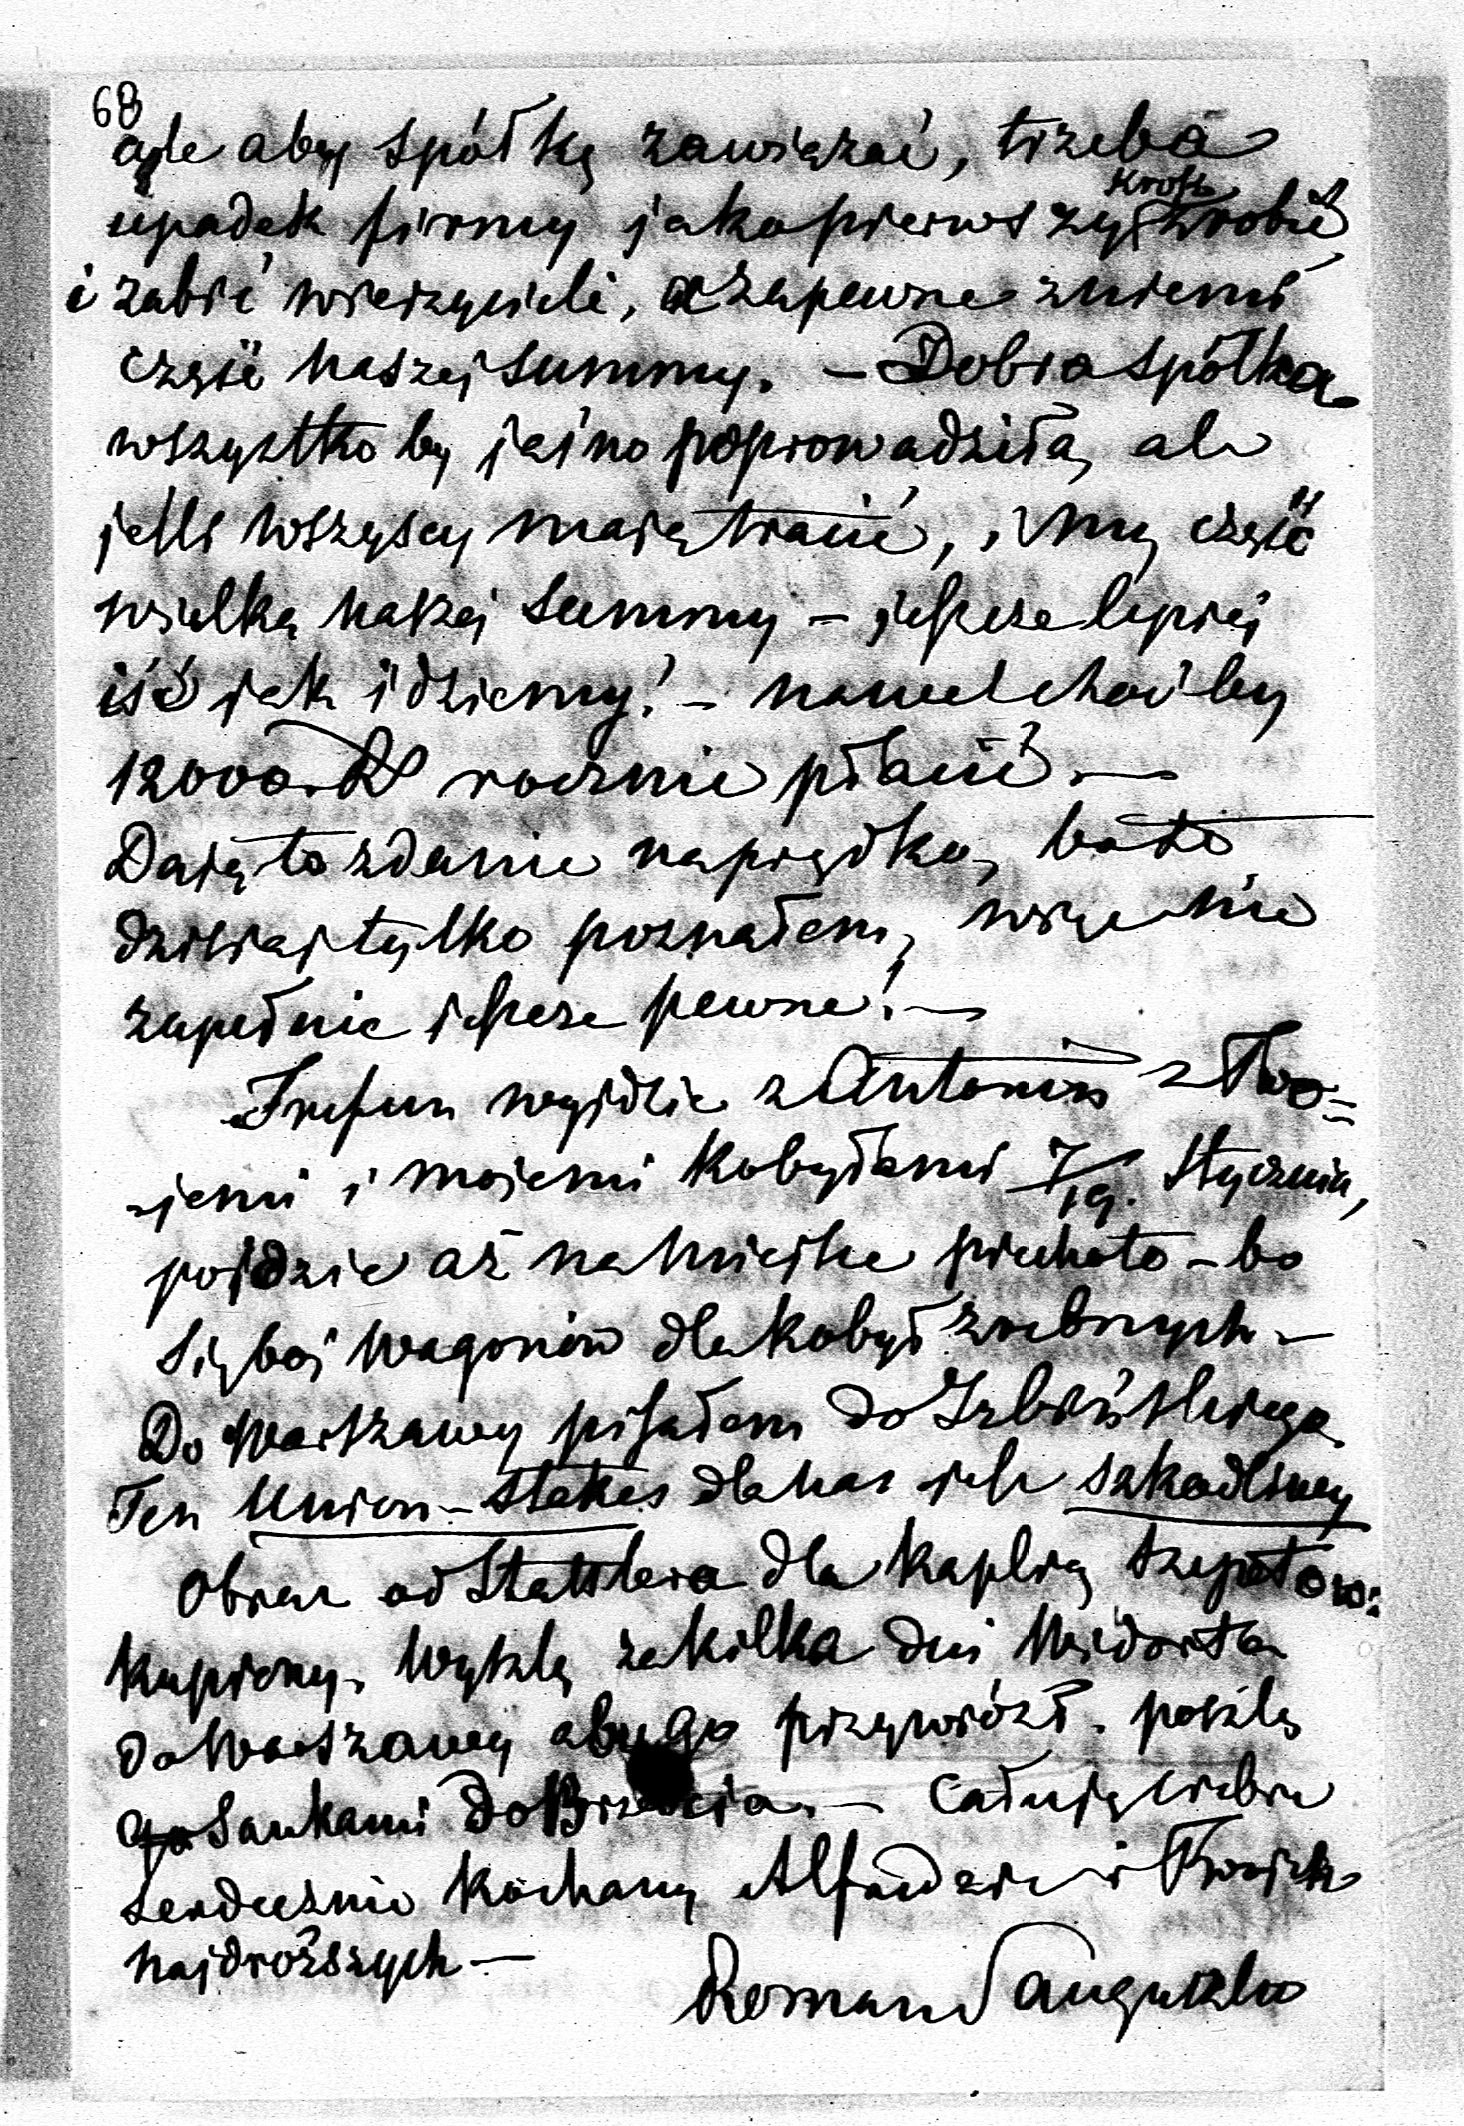 68
ale aby spółkę zawiązać, trzeba
upadek firmy jako pierwszy krok zrobić
i zabić wierzycieli, a zapewne z niemi
część naszej summy. — Dobra spółka
wszystko by jasno poprowadziła, ale
jeśli wszyscy mają tracić, i my część
wielką naszej summy — jeszcze lepiej
iść jak idziemy! — nawet choćby
12000 R rocznie płacić. —
Daję to zdanie naprędko, bo to
dzisiaj tylko poznałem, więc nie
zupełnie jeszcze pewne! —
wyjdzie z Antonim z Two=
jemi i mojemi kobyłami 7/19. Stycznia,
pójdzie aż na miejsce piechoto — bo
się boi wagonów dla kobył źrebnych —
Do Warszawy pisałem do
Ten Union-Stakes dla nas jest szkodliwy
Obraz od Stattlera dla kaplicy Szepetow:
kupiony. Wyszlę za kilka dni Widorta
do Warszawy aby go przywiózł. poszlę
go sankami do Brześcia. — Całuję ciebie
serdecznie kochany Alfredzie i Twoich
najdroższych —
Roman Sanguszko